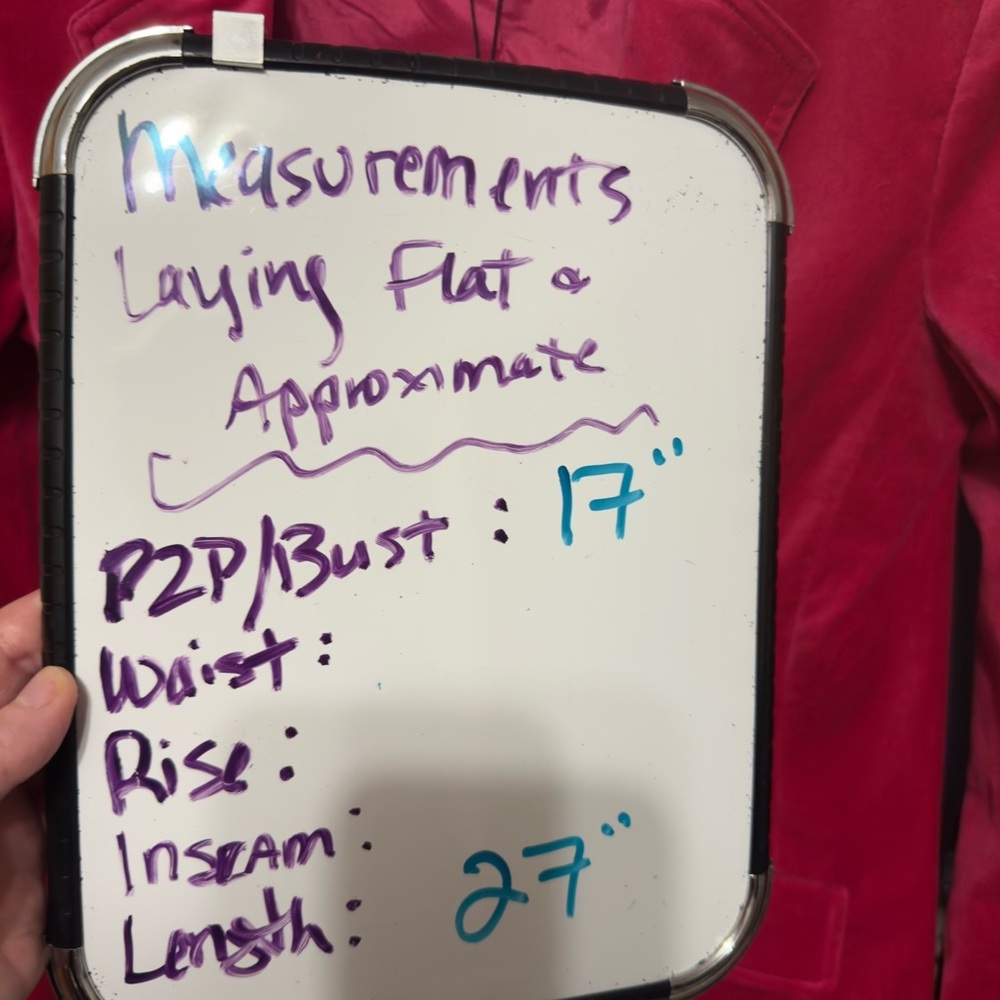 Measurements
Laying Flat &
Approximate
P2P/Bust: 17"
Waist:
Rise:
Inseam:
Length: 27"